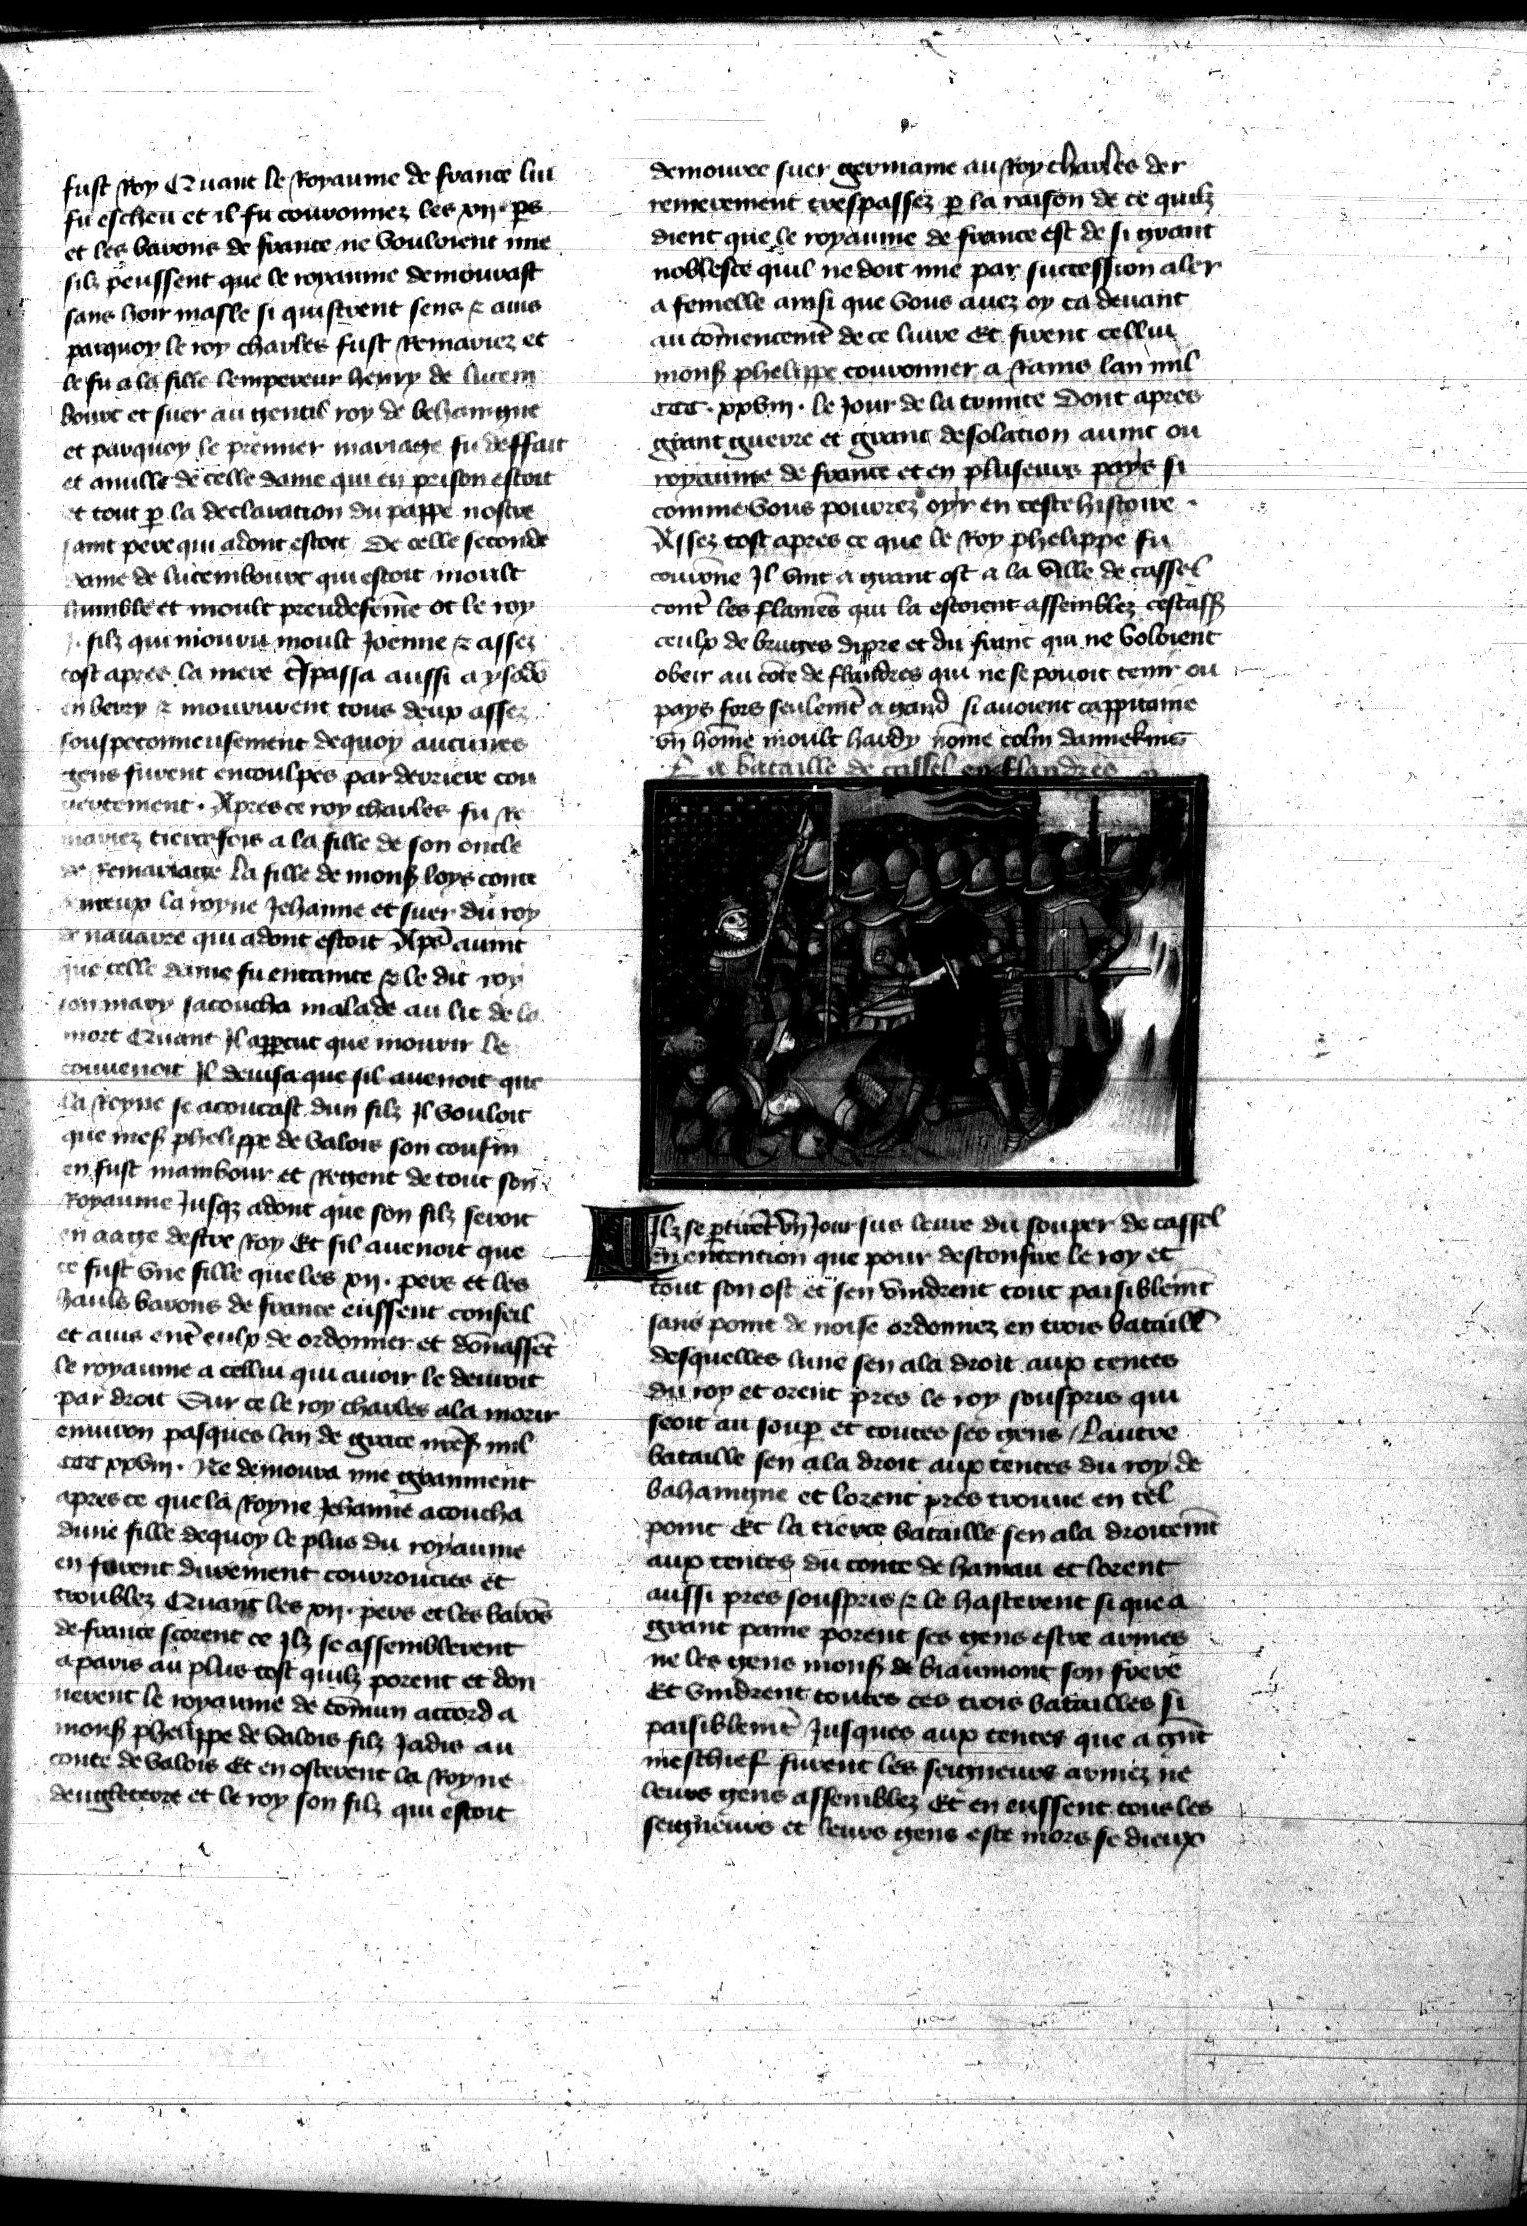 fust Roy Quant le Royaume de france lui
fu escheu et il fu couronnez les xii. ps
et les barons de france ne vouloient mie
silz peussent que le royaume demourast
sans hoir masle si quistrent sens & auis
parquoy le roy charles fust Remariez et
le fu a la fille lempereur henry de lucem
bourc et suer au gentil roy de behaingne
et parquoy le premier mariage fu deffait
et anulle de celle dame qui en prison estoit
et tout p la declaration du pappe nostre
saint pere qui adont estoit De celle seconde
dame de lucembourc qui estoit moult
humble et moult preudefeme ot le roy
j. filz qui mouru moult Joenne & assez
tost apres la mere t̃spassa aussi a ysodũ
en berry & moururent tous deux assez
souspeconneusement dequoy aucunes
gens furent encoulpes par derriere cou
uertement. Apres ce roy charles fu Re
mariez tiercefois a la fille de son oncle
de Remariage La fille de mons̃ loys conte
deureux la royne Jehanne et suer du roy
de nauarre qui adont estoit Apẽ auint
que celle dame fu encainte & le dit roy
son mary sacoucha malade au lit de la
mort Quant Il appercut que mourir le
conuenoit Il deuisa que sil auenoit que
la Royne se acoucast dun filz Il vouloit
que mess̃ phelippe de valois son cousin
en fust mambour et Regent de tout son
Royaume Jusqz adont que son filz seroit
en aage destre Roy Et sil auenoit que
ce fust vne fille que les xii. pers et les
hauls barons de france eussent conseil
et auis ent̃ eulx de ordonner et dõnassẽt
le royaume a cellui qui auoir le deuroit
par droit Sur ce le roy charles ala morir
enuiron pasques lan de grace nr̃eS̃ mil
CCC xxviii. Ne demoura mie granment
apres ce que la Royne Jehanne acoucha
dune fille dequoy le plus du royaume
en furent durement courroucies et
troublez Quant les xii. pers et les barõs
de france scorent ce Ilz se assemblerent
a paris au plus tost quilz porent et don
nerent le royaume de cõmun accord a
mons̃ phelippe de valois filz Jadis au
conte de valois Et en osterent la Royne
dengleterre et le roy son filz qui estoit
demouree suer germaine au Roy charles der
renierement trespassez p la raison de ce quilz
dient que le royaume de france est de si grant
noblesce quil ne doit mie par succession aler
a femelle ainsi que vous auez oy ca deuant
au cõmencemẽt de ce liure Et firent cellui
mons̃ phelippe couronner a Rains lan mil
CCC. xxviii. le Jour de la trinite Dont apres
grant guerre et grant desolation auint ou
royaume de france et en pluseurs pays si
comme vous pourrez oyr en ceste histoire.
Assez tost apres ce que le Roy phelippe fu
courõne Il vint a grant ost a la ville de cassel
cont̃ les flamẽs qui la estoient assemblez cestass̃
ceulx de bruges dipre et du franc qui ne voloient
obeir au cõte de flandres qui ne se pouoit tenir ou
pays fors seulemt̃ a gand si auoient cappitaine
vn hõme moult hardy nõme colin dannekins
La bataille de cassel en flandres
Ilz se ptirẽt vn Jour sus leure du souper de cassel
en entention que pour desconfire le roy et
tout son ost et sen vindrent tout paisiblemt̃
sans point de noise ordonnez en trois bataill̃
desquelles lune sen ala droit aux tentes
du roy et orent pres le roy souspris qui
seoit au soup et toutes ses gens / Lautre
bataille sen ala droit aux tentes du roy de
bahaingne et lorent pres trouue en tel
point Et la tierce bataille sen ala droitemt̃
aux tentes du conte de hainau et lorent
aussi pres souspris & le hasterent si que a
grant paine porent ses gens estre armes
ne les gens mons̃ de biaumont son frere
Et vindrent toutes ces trois batailles si
paisiblemt̃ Jusques aux tentes que a gñt
meschief furent les seigneurs armez ne
leurs gens assemblez Et en eussent tous les
seigneurs et leurs gens este mors se dieux